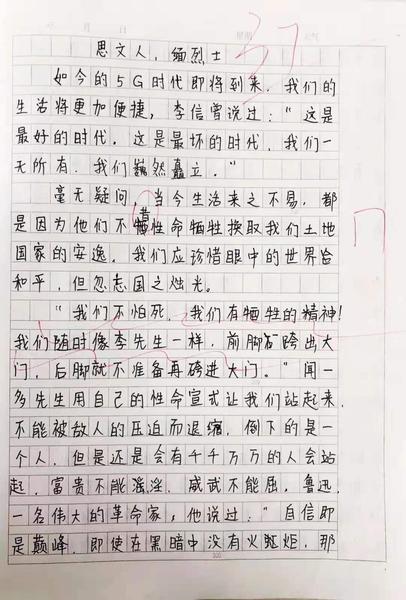 月 日 星期 天气
37
思文人，缅烈士
如今的5G时代即将到来，我们的
生活将更加便捷，李信曾说过："这是
最好的时代，这是最坏的时代，我们一
无所有，我们巍然矗立。"
毫无疑问，当今生活来之不易，都
是因为他们不惜性命牺牲换取我们土地
国家的安逸，我们应珍惜眼中的世界皆
和平，但忽忘国之烛光。
"我们不怕死，我们有牺牲的精神！
我们随时像李先生一样，前脚跨出大
门，后脚就不准备再跨进大门。"闻一
多先生用自己的性命宣式让我们站起来，
不能被敌人的压迫而退缩，倒下的是一
个人，但是还是会有千千万万的人会站
起，富贵不能淫，威武不能屈，鲁迅，
一名伟大的革命家，他说过："自信即
是巅峰，即使在黑暗中没有火炬，那
300